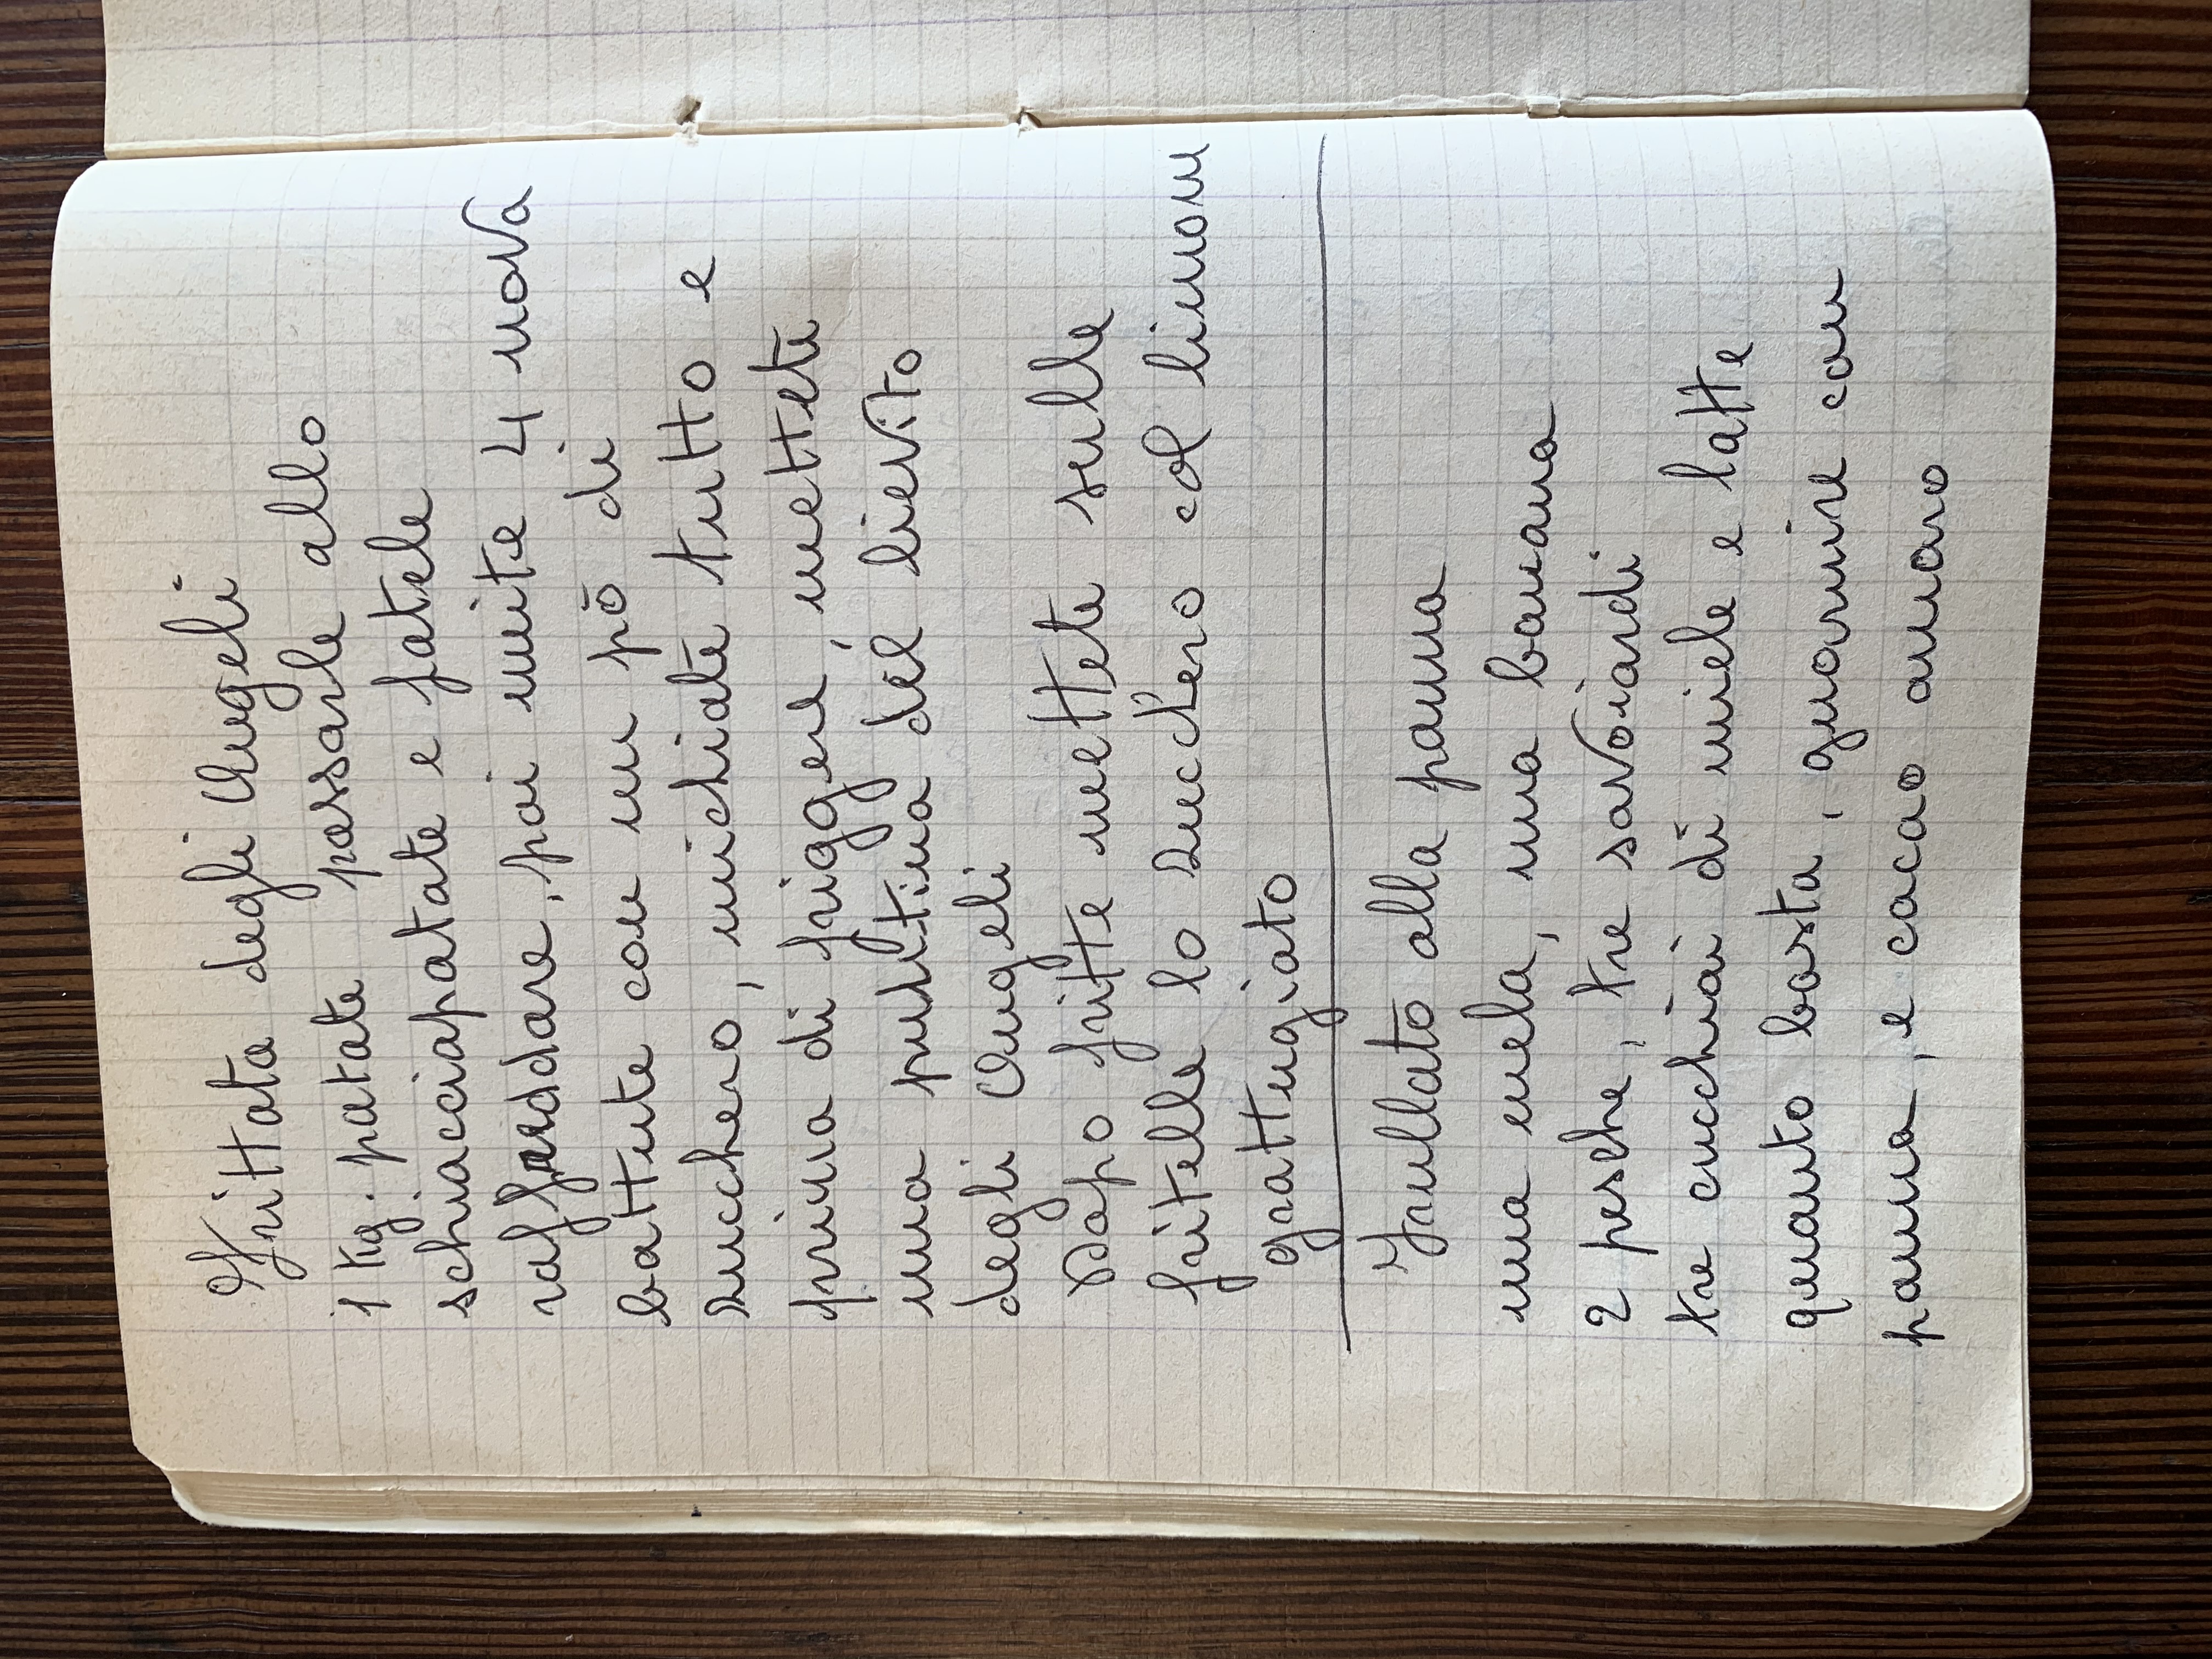 Frittata degli Angeli
1 Kg. patate passarle allo
schiacciapatate e fatele
raffreddare, poi unite 4 uova
battute con un pō di
zucchero, michiate tutto e
prima di friggere, mettete
una puntina del lievito
degli Angeli
Dopo fritte mettete sulle
fritelle lo zucchero col limone
grattugiato
Frullato alla panna
una mela, una banana
2 pesche, tre savoiardi
tre cucchiai di miele e latte
quanto basta, guarnire con
panna, e cacao amaro